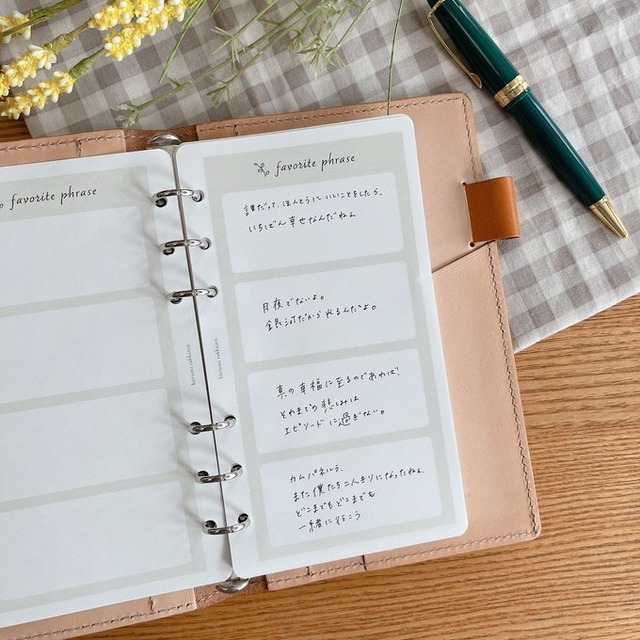 favorite phrase
favorite phrase
誰だって、ほんとうにいいことをしたら、
いちばん幸せなんだねえ
月夜でないよ。
銀河だから光るんだよ。
真の幸福に至るのであれば、
それまでの悲しみは
エピソードに過ぎない。
カムパネルラ、
また僕たち二人きりになったねえ、
どこまでもどこまでも
一緒に行こう